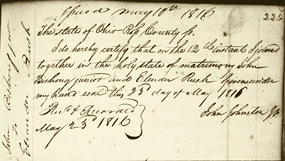 Issued May 10th 1816
225
The State of Ohio Ross County ss.
I do hereby certify that on the 12 Instant I joined
together in the holy state of matrimony John
Bushong junior and Elender Rush Given under
my hand and this 23d day of May 1816
John Johnston JP
Recd & Recorded
May 23d 1816
John Bushong Junr
to
Elender Rush